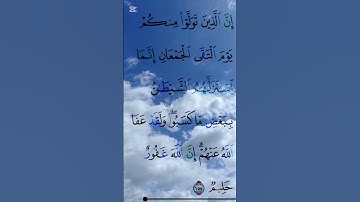 إِنَّ ٱلَّذِينَ تَوَلَّوْا۟ مِنكُمْ
يَوْمَ ٱلْتَقَى ٱلْجَمْعَانِ إِنَّمَا
ٱسْتَزَلَّهُمُ ٱلشَّيْطَٰنُ
بِبَعْضِ مَا كَسَبُوا۟ ۖ وَلَقَدْ عَفَا
ٱللَّهُ عَنْهُمْ ۗ إِنَّ ٱللَّهَ غَفُورٌ
حَلِيمٌ ١٥٥